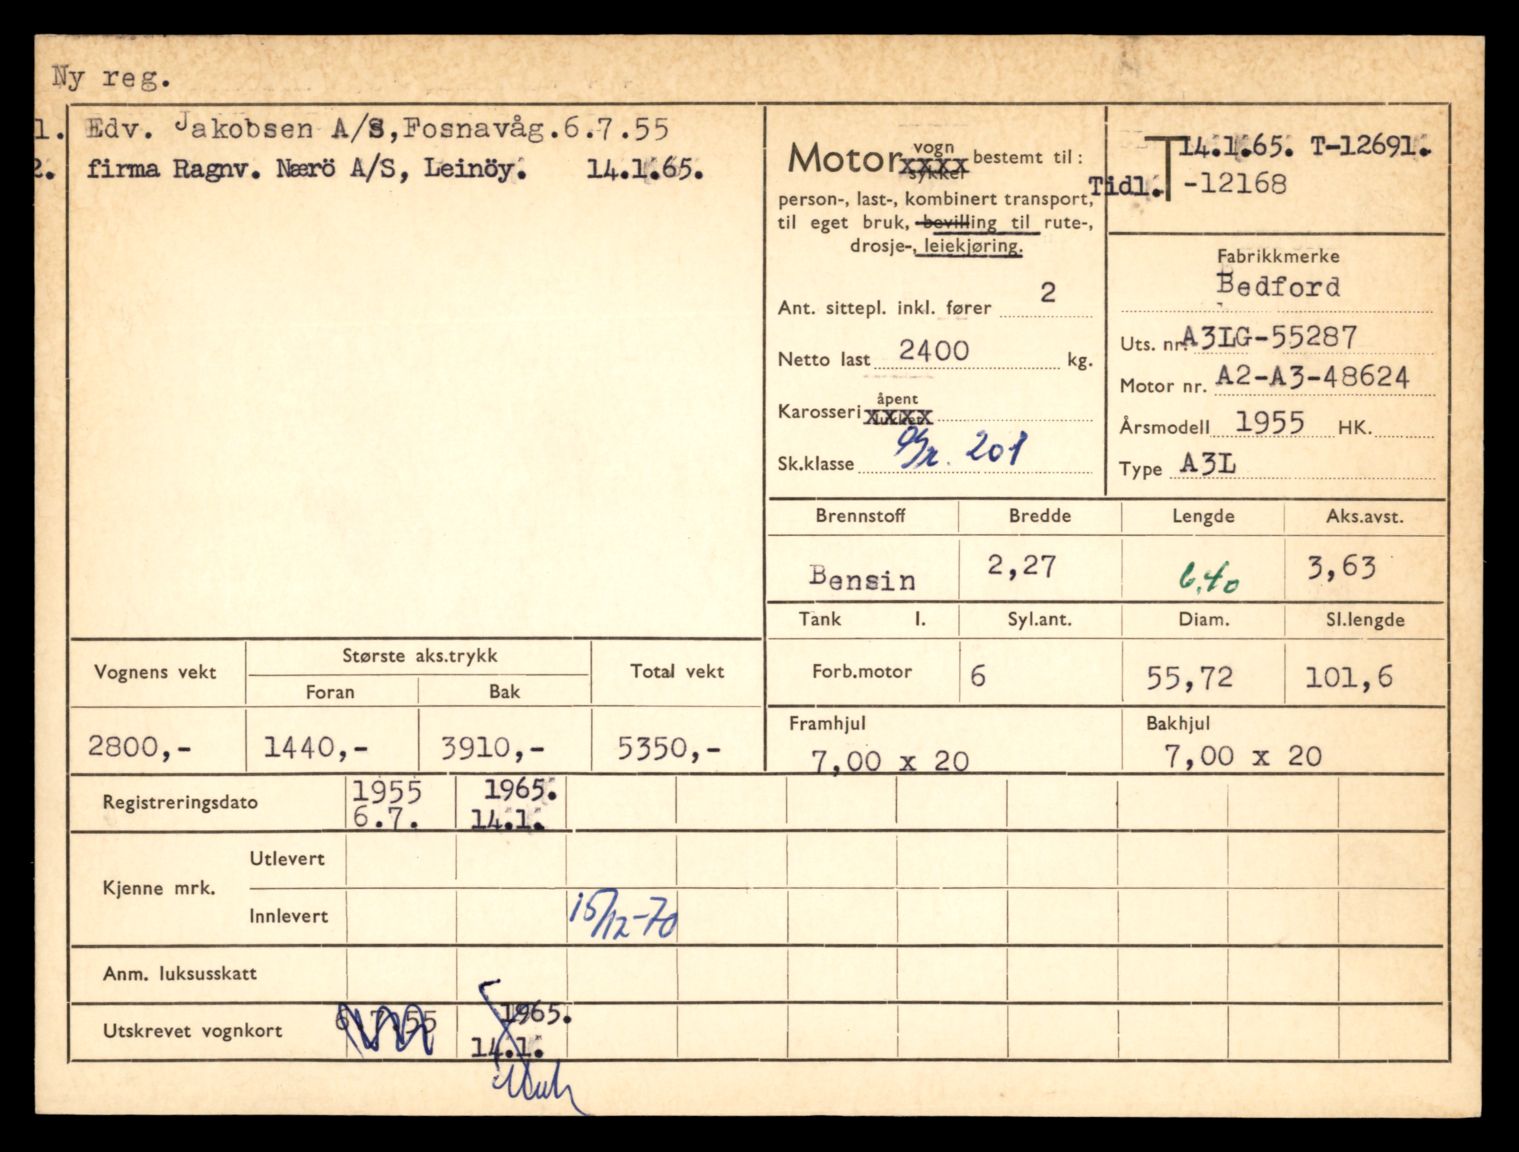 Ny reg.
1. Edv. Jakobsen A/S, Fosnavåg. 6.7.55
2. firma Ragnv. Nærö A/S, Leinöy. 14.1.65.
Motor vogn sykkel xxxx bestemt til:
person-, last-, kombinert transport,
til eget bruk, bevilling til rute-,
drosje-, leiekjøring.
T 14.1.65. T-12691.
Tidl. -12168
Fabrikkmerke
Bedford
Ant. sittepl. inkl. fører 2
Uts. nr. A3LG-55287
Netto last 2400 kg.
Motor nr. A2-A3-48624
Karosseri åpent lukket xxxx
Årsmodell 1955 HK.
Sk.klasse Gr. 201
Type A3L
Brennstoff Bredde Lengde Aks.avst.
Bensin 2,27 6,40 3,63
Tank l. Syl.ant. Diam. Sl.lengde
Forb.motor 6 55,72 101,6
Vognens vekt Største aks.trykk Total vekt
Foran Bak
2800,- 1440,- 3910,- 5350,-
Framhjul Bakhjul
7,00 x 20 7,00 x 20
Registreringsdato 1955 1965.
6.7. 14.1.
Kjenne mrk. Utlevert
Innlevert 15/12-70
Anm. luksusskatt
Utskrevet vognkort 6.7.55 1965.
14.1.